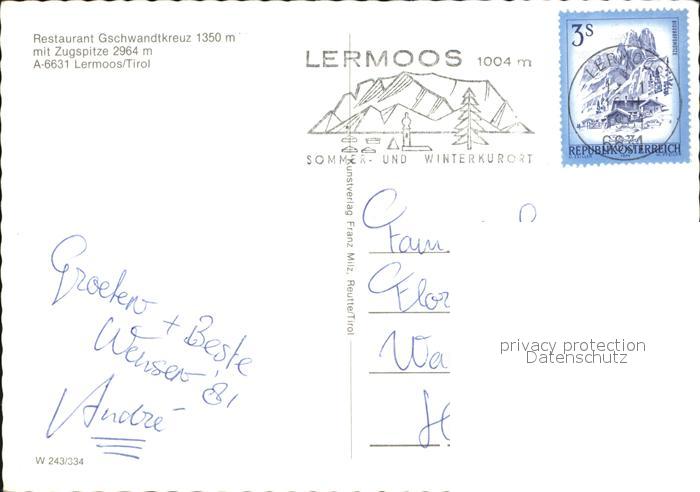 Restaurant Gschwandtkreuz 1350 m
mit Zugspitze 2964 m
A-6631 Lermoos/Tirol
LERMOOS 1004 m
SOMMER- UND WINTERKURORT
3S
LERMOOS
REPUBLIK ÖSTERREICH
Kunstverlag Franz Milz, Reutte/Tirol
Fam.
Flor
Wa
H
Groeten
+ Beste
Wensen
André
privacy protection
Datenschutz
W 243/334